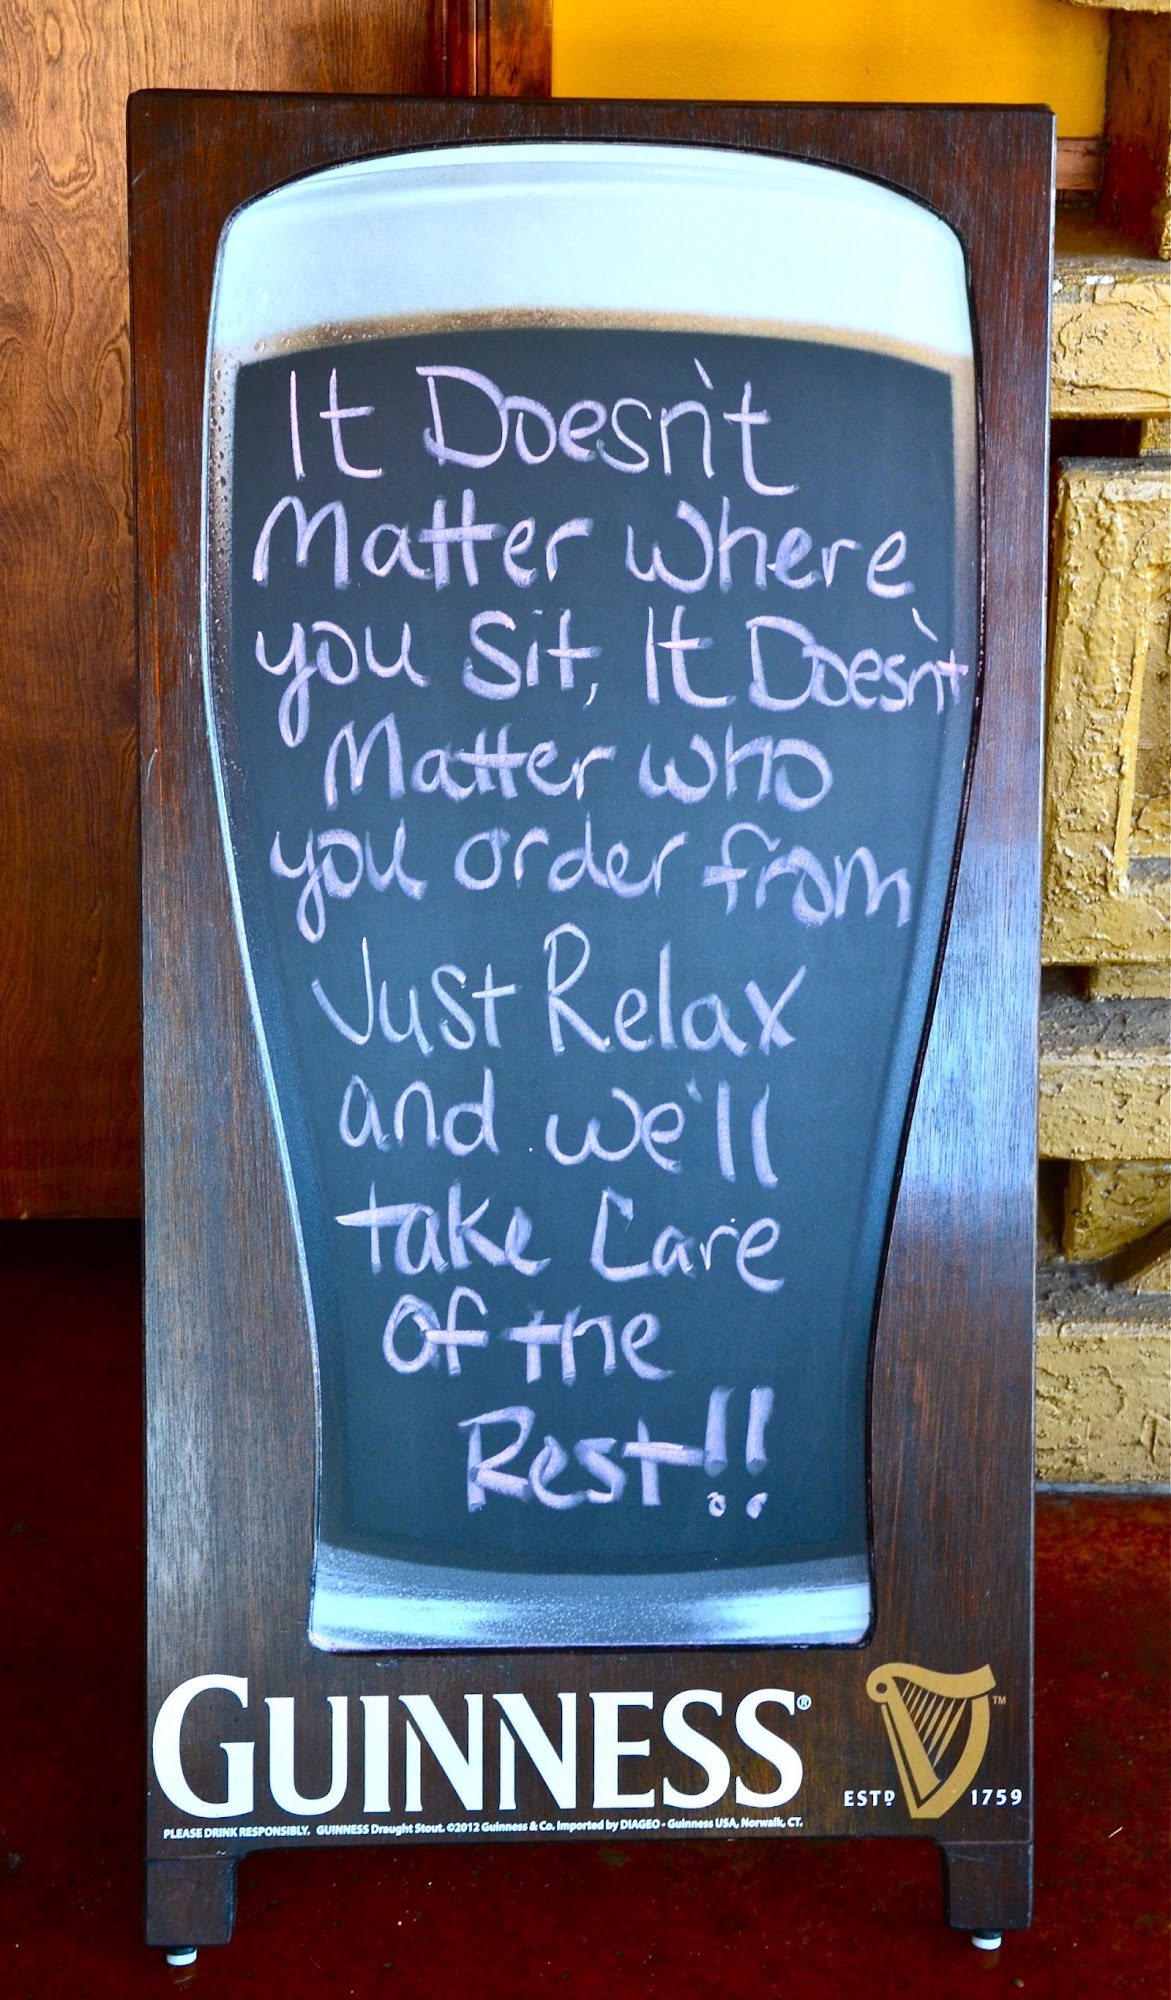 It Doesn't
Matter where
you Sit, It Doesn't
Matter who
you order from
Just Relax
and we'll
take Care
Of the
Rest!!
GUINNESS®
™
ESTD 1759
PLEASE DRINK RESPONSIBLY. GUINNESS Draught Stout. ©2012 Guinness & Co. Imported by DIAGEO - Guinness USA, Norwalk, CT.